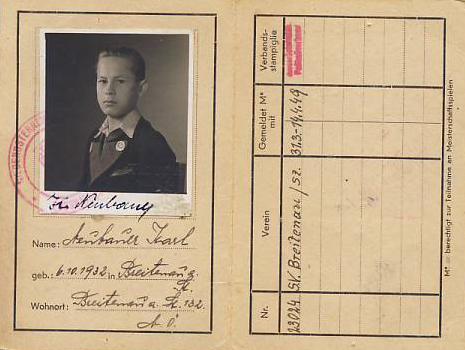 Neubauer
Name: Neubauer Karl
geb.: 6.10.1932 in Breitenau a.
St.
Wohnort: Breitenau a. St. 132.
N. Ö.
Verbands-
stampiglie
Gemeldet M*
mit
31.3.-14.4.49
Verein
S.V. Breitenau / Sz.
Nr.
23024
M* = berechtigt zur Teilnahme an Meisterschaftsspielen